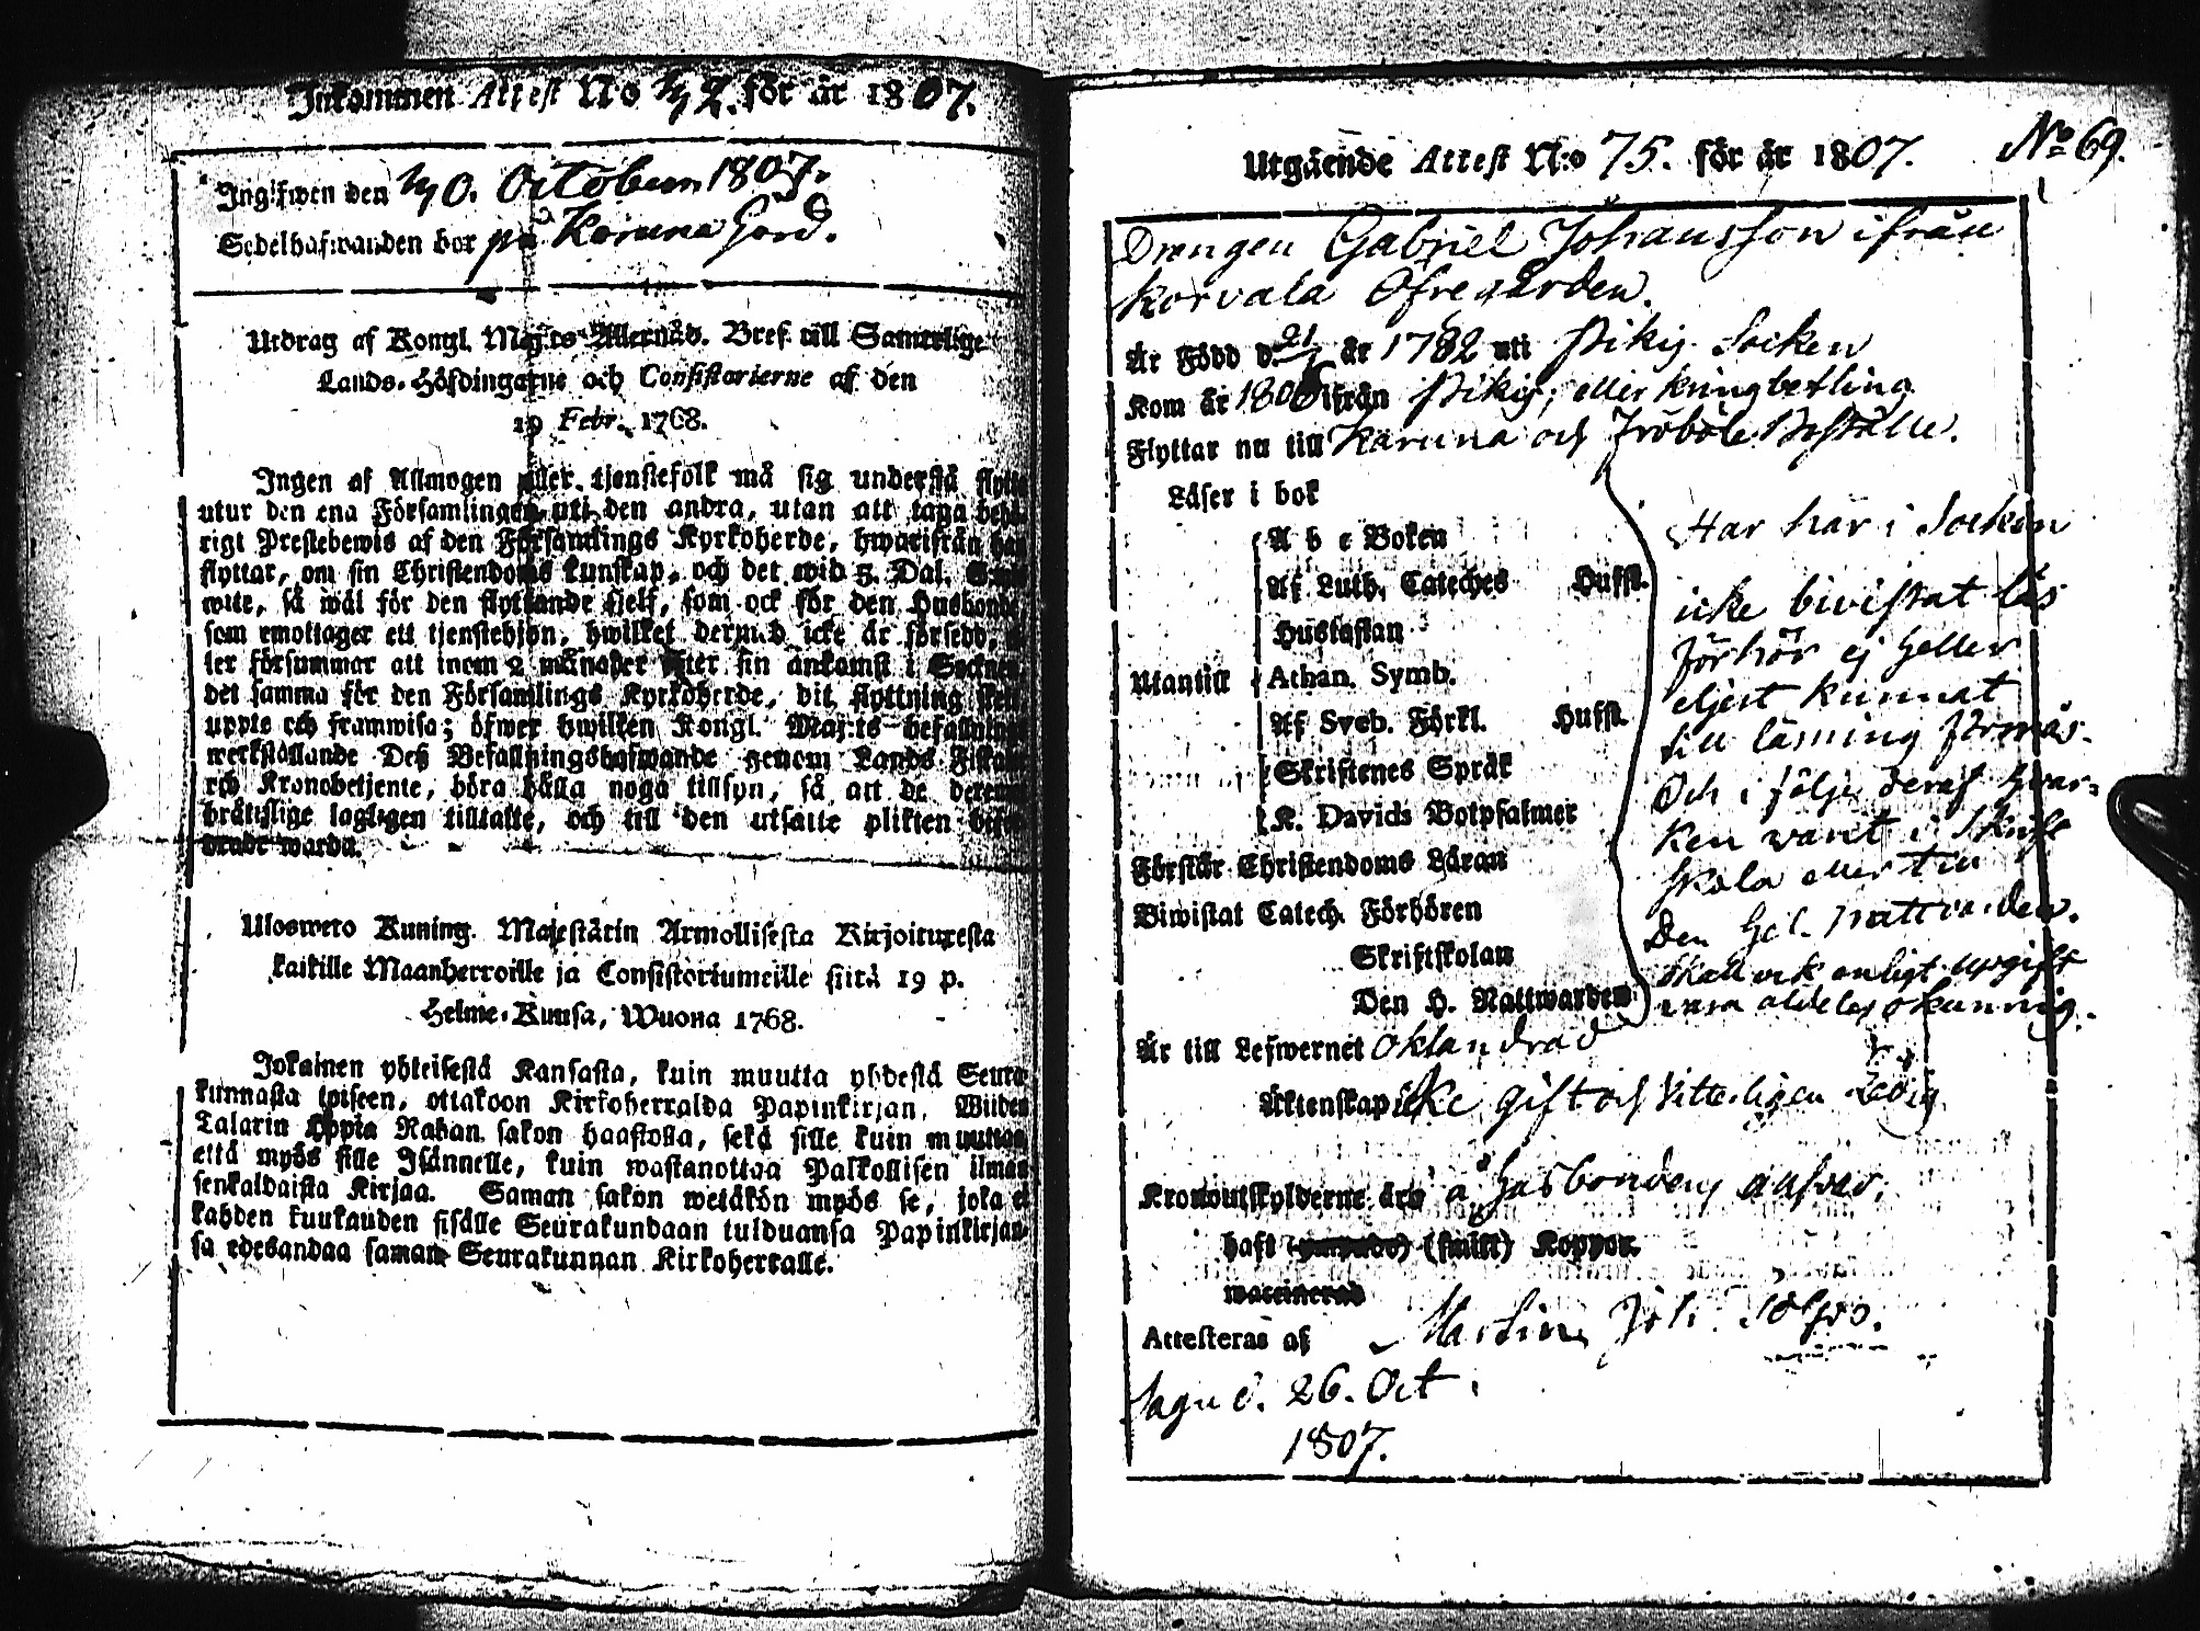 Inkommen Attest No 42. för år 1807.
Ingifwen den 40. October 1807.
Sedelhafwanden bor på Karuna Gård.
Utdrag af Kongl. Maj:ts Allernåd. Bref till Samtelige
Lands-Höfdingarne och Consistorierne af den
19 Febr. 1768.
Ingen af Allmogen eller tjenstefolk må sig understå flytta
utur den ena Församlingen uti den andra, utan att taga behö-
rigt Prestebewis af den Församlings Kyrkoherde, hwarifrån han
flyttar, om sin Christendoms kunskap, och det wid 5. Dal. S:mts
wite, så wäl för den flyttande sjelf, som ock för den Husbonde,
som emottager ett tjenstehjon, hwilket dermed icke är försedt,
ler försummar att inom 2 månader efter sin ankomst i Socknen
det samma för den Församlings Kyrkoherde, dit flyttning sker,
uppte och framwisa; öfwer hwilken Kongl. Maj:ts befallnings
werkställande Deß Befallningshafwande genom Lands Fiskaler
och Kronobetjente, böra hålla noga tillsyn, så att de deremot
bråtslige lagligen tilltalte, och till den utsatte plikten
warda.
Ulosweto Kuning. Majestätin Armollisesta Kirjoituxesta
kaikille Maanherroille ja Consistoriumeille siitä 19 p.
Helme-Kuusa, Wuona 1768.
Jokainen yhteisestä Kansasta, kuin muutta yhdestä Seura-
kunnasta toiseen, ottakoon Kirkoherralda Papinkirjan, Wiiden
Talarin Hopia Rahan sakon haastolla, sekä sille kuin muuttaa,
että myös sille Isännelle, kuin wastanottaa Palkollisen ilman
senkaldaista Kirjaa. Saman sakon wetäkön myös se, joka ei
kahden kuukauden sisälle Seurakundaan tulduansa Papinkirjan-
sa edesandaa saman Seurakunnan Kirkoherralle.
No 69.
Utgående Attest N:o 75. för år 1807.
Drengen Gabriel Johansson ifrån
Korvala Öfregården.
Är Född d. 21 år 1782 uti Pikis Socken
Kom år 1806 ifrån Pikis, eller kringbetling
Flyttar nu till Karuna och Fröböle Boställe.
Läser i bok
A b c Boken
Af Luth. Cateches Hufst.
Hustaflan
Utantill Athan. Symb.
Af Sveb. Förkl. Hufst.
Skriftenes Språk
K. Davids Botpsalmer
Förstår Christendoms Läran
Biwistat Catech. Förhören
Skriftskolan
Den H. Nattwarden
Har här i Socken
icke bivistat läs
förhör ej heller
eljest kunnat
till läsning förmås.
Och i följe deraf hvar-
ken varit i Skrift
Skola eller till
Den Hel. Nattvarden.
Skall ock enligt upgift
vara aldeles okunnig.
Är till Lefwernet oklandrad
Äktenskap icke gift och vitterligen Ledig
Kronoutskylderne äro å Husbondens ansvar.
haft (ympade) (smitt) Koppor.
waccinerad
Attesteras af Martin Joh. Tolpo.
Sagu d. 26. Oct.
1807.